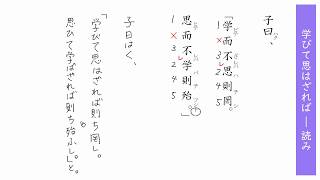 学びて思はざれば ― 読み
子曰、
「学而不思則罔。
1×3レ245
思而不学則殆。」
1×3レ245
子曰はく、
「学びて思はざれば則ち罔し。
思ひて学ばざれば則ち殆ふし。」と。